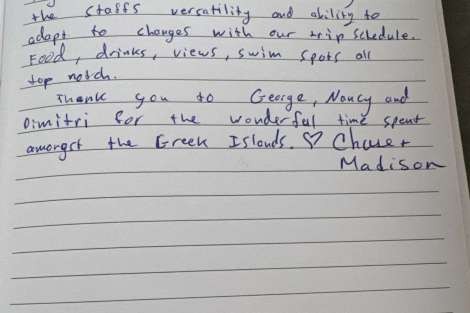 the staffs versatility and ability to
adapt to changes with our trip schedule.
Food, drinks, views, swim spots all
top notch.
Thank you to George, Nancy and
Dimitri for the wonderful time spent
amongst the Greek Islands. ♡ Chase +
Madison